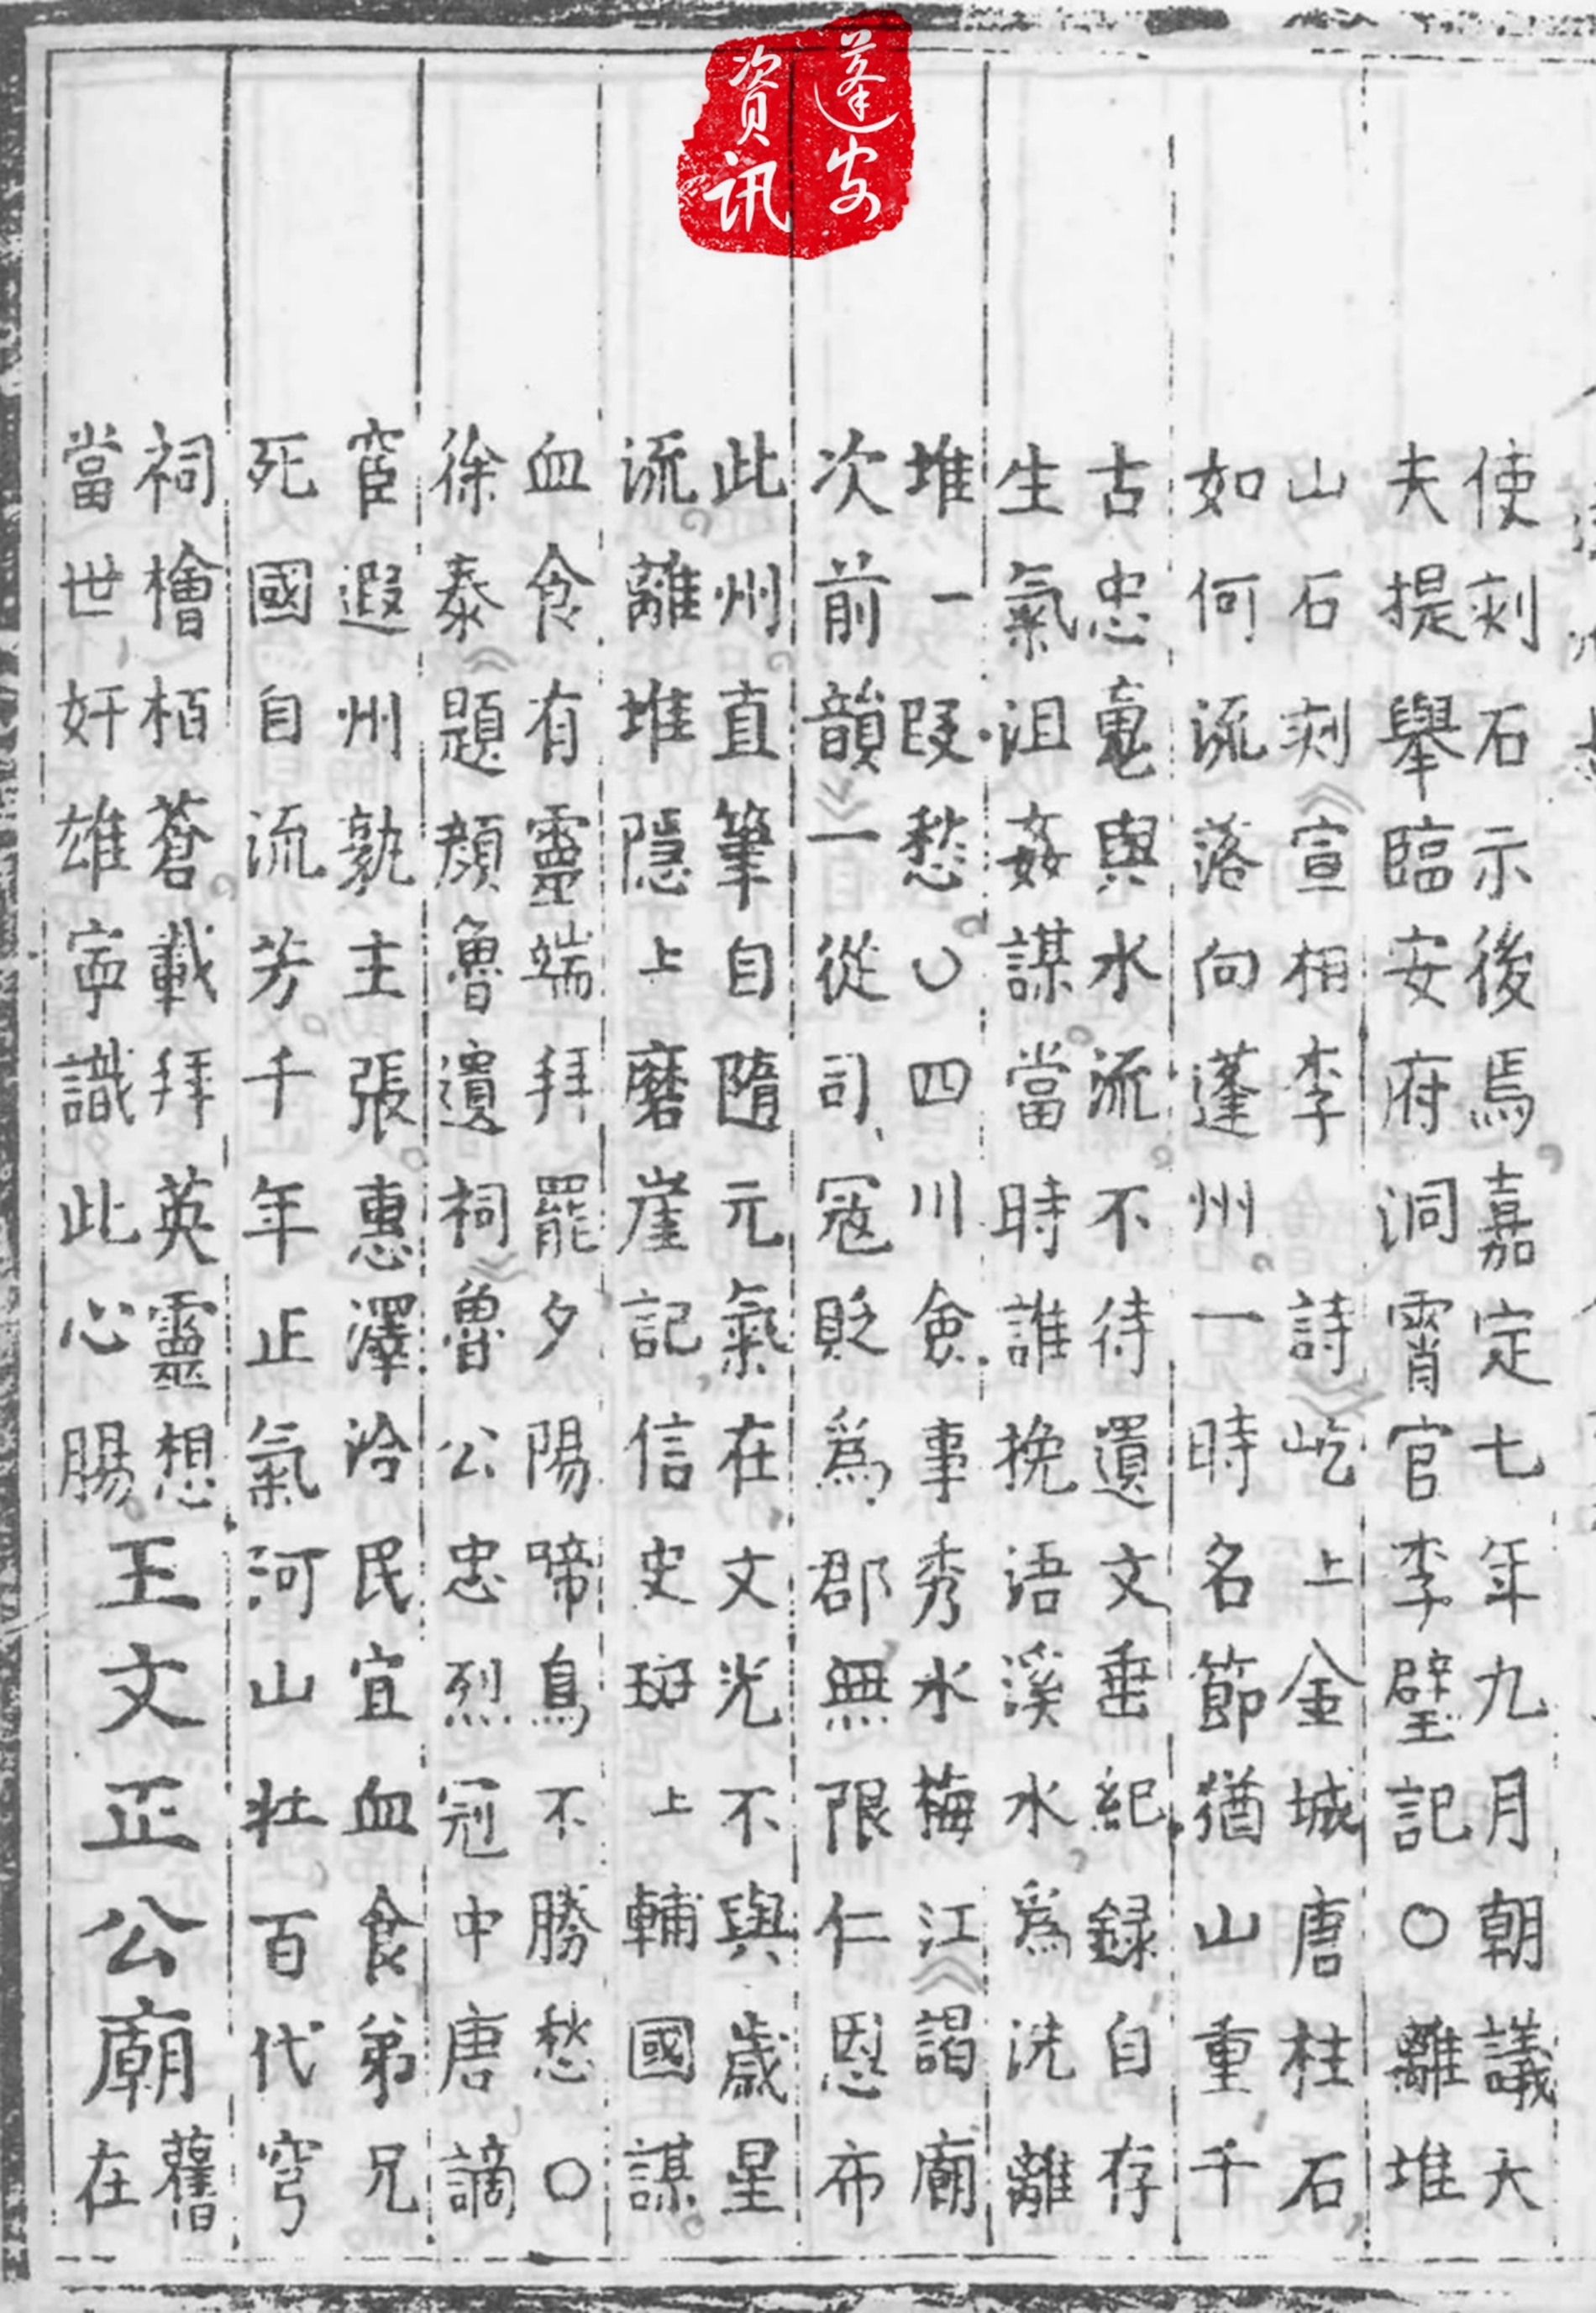 蓬安
資讯
使刻石示後焉嘉定七年九月朝議大
夫提舉臨安府洞霄宮李璧記○離堆
山石刻宣相李詩屹上金城唐柱石
如何流落向蓬州一時名節猶山重千
古忠䰟與水流不待遺文垂紀録自存
生氣沮姦謀當時誰挽浯溪水爲洗離
堆一段愁○四川僉事秀水梅江謁廟
次前韻一從司冦貶爲郡無限仁恩布
此州直筆自隨元氣在文光不與歲星
流離堆隱上磨崖記信史斑上輔國謀
血食有靈端拜罷夕陽啼鳥不勝愁○
徐泰題顔魯遺祠魯公忠烈冠中唐謫
宦遐州孰主張惠澤洽民宜血食弟兄
死國自流芳千年正氣河山壯百代穹
祠檜栢蒼載拜英靈想
當世奸雄寕識此心腸
王文正公廟
舊
在